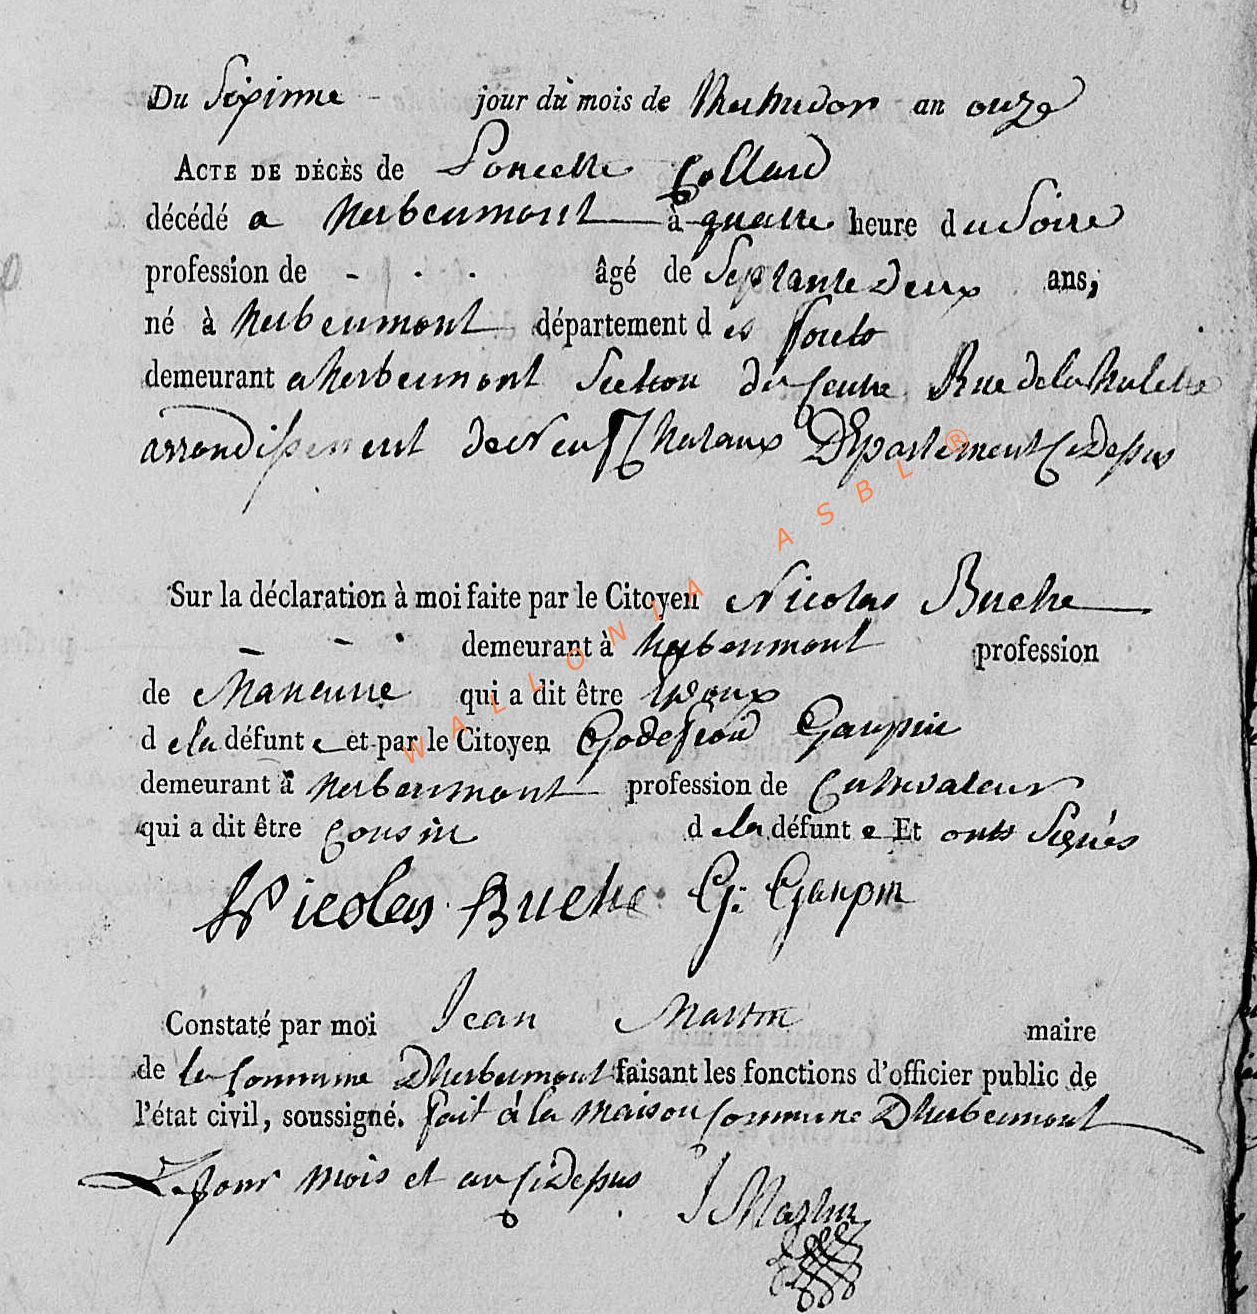 Du Sixieme jour du mois de thermidor an onze
ACTE DE DÉCÈS de Poncette Collard
décédé a herbeumont à quatre heure du Soire
profession de - - - âgé de Septante deux ans,
né à herbeumont département des forets
demeurant a herbeumont Section du Centre Rue de la
arrondissement de Neufchataux Département Ci Dessus
Sur la déclaration à moi faite par le Citoyen Nicolas Buche
demeurant à herbeumont profession
de Maneuvre qui a dit être Epoux
de la défunte et par le Citoyen Godefroid Gaupin
demeurant à herbeumont profession de Cultivateur
qui a dit être Cousin de la défunte Et onts Signés
Nicolas Buche G: Gaupin
Constaté par moi Jean Martin maire
de la Commune Dherbeumont faisant les fonctions d'officier public de
l'état civil, soussigné. fait à la maison Commune Dherbeumont
Le Jour mois et an Ci Dessus J Martin
WALLONIA ASBL ®